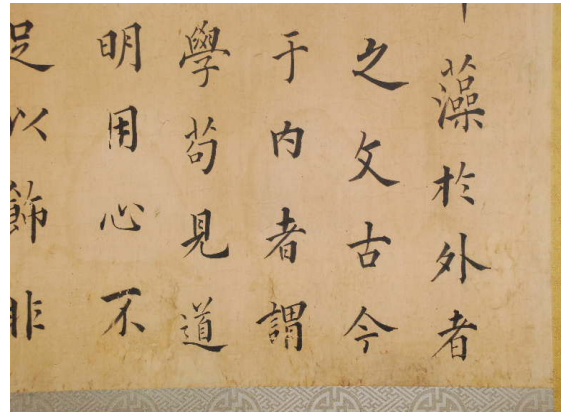 藻於外者
之文古今
于内者謂
學苟見道
明用心不
足以飾非